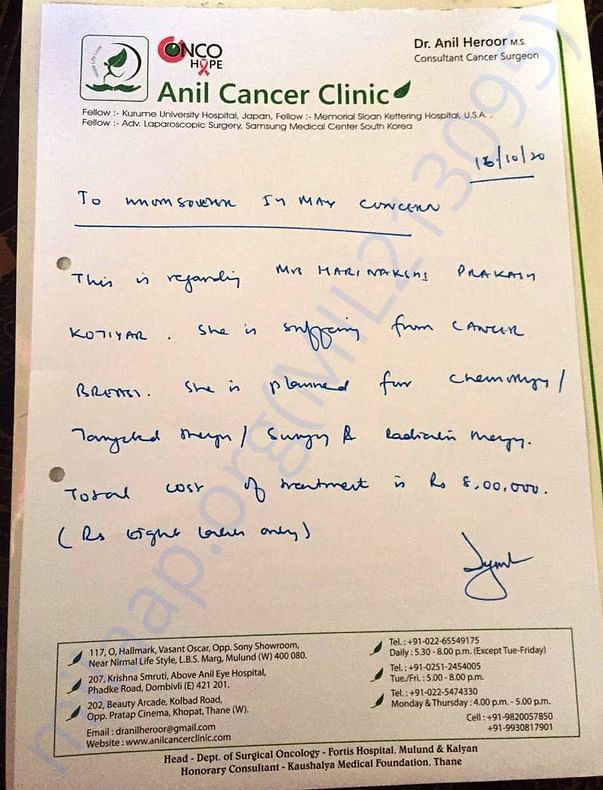 ONCO
HOPE
Dr. Anil Heroor M.S.
Consultant Cancer Surgeon
Anil Cancer Clinic
Fellow :- Kurume University Hospital, Japan, Fellow :- Memorial Sloan Kettering Hospital, U.S.A. .
Fellow :- Adv. Laparoscopic Surgery, Samsung Medical Center South Korea
16/10/20
To whomsoever it may concern
This is regarding Mrs HARINAKSHI PRAKASH
KOTIYAR. She is suffering from CANCER
BREAST. She is planned for chemotherapy /
Targeted therapy / Surgery & Radiation therapy.
Total cost of treatment is Rs 8,00,000.
(Rs Eight lakhs only)
117, O, Hallmark, Vasant Oscar, Opp. Sony Showroom,
Near Nirmal Life Style, L.B.S. Marg, Mulund (W) 400 080.
207, Krishna Smruti, Above Anil Eye Hospital,
Phadke Road, Dombivli (E) 421 201.
202, Beauty Arcade, Kolbad Road,
Opp. Pratap Cinema, Khopat, Thane (W).
Email : dranilheroor@gmail.com
Website : www.anilcancerclinic.com
Tel. : +91-022-65549175
Daily : 5.30 - 8.00 p.m. (Except Tue-Friday)
Tel. : +91-0251-2454005
Tue./Fri. : 5.00 - 8.00 p.m.
Tel. : +91-022-5474330
Monday & Thursday : 4.00 p.m. - 5.00 p.m.
Cell : +91-9820057850
+91-9930817901
Head - Dept. of Surgical Oncology - Fortis Hospital, Mulund & Kalyan
Honorary Consultant - Kaushalya Medical Foundation, Thane
milaap.org(MIL213095)